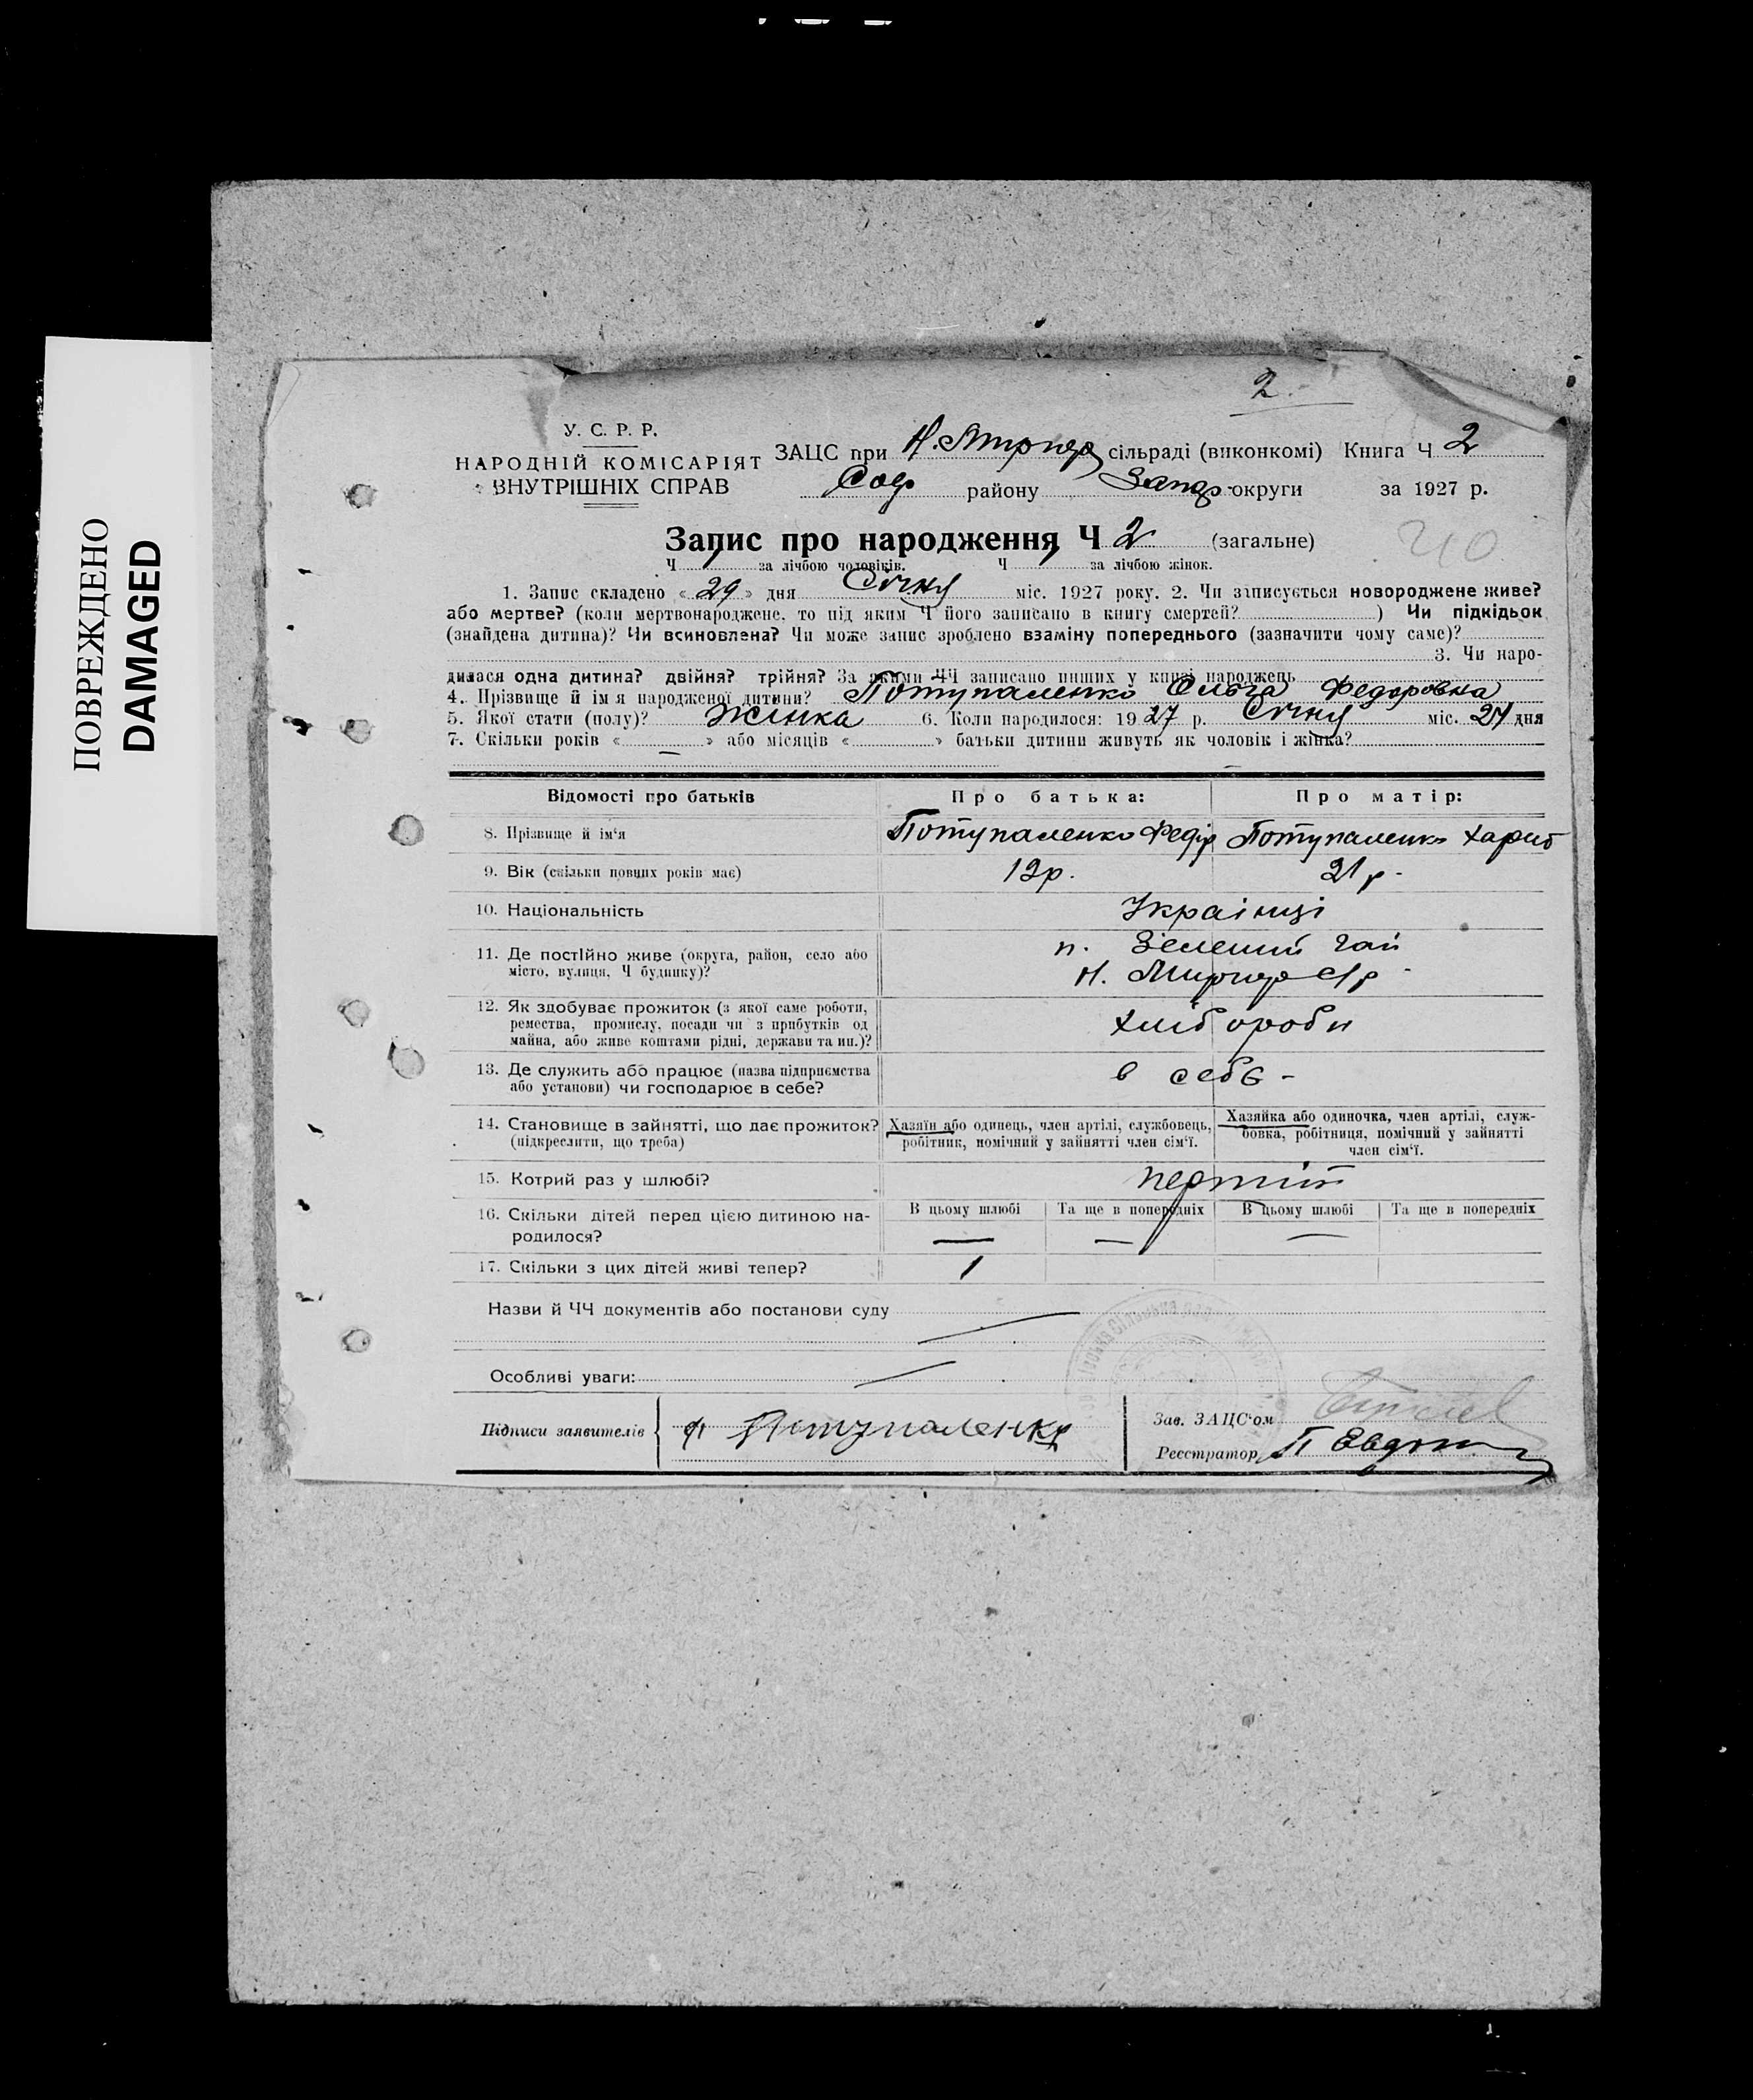 ПОВРЕЖДЕНО
DAMAGED
2.
У. С. Р. Р.
НАРОДНІЙ КОМІСАРІЯТ
ВНУТРІШНІХ СПРАВ
ЗАЦС при Н. сільраді (виконкомі) Книга Ч 2
Соф району Запор округи за 1927 р.
Запис про народження Ч 2 (загальне)
210
Ч за лічбою чоловіків. Ч за лічбою жінок.
1. Запис складено « 29 » дня Січня міс. 1927 року. 2. Чи записується новороджене живе?
або мертве? (коли мертвонароджене, то під яким Ч його записано в книгу смертей? ) Чи підкідьок
(знайдена дитина)? Чи всиновлена? Чи може запис зроблено взаміну попереднього (зазначити чому саме)?
3. Чи наро-
дилася одна дитина? двійня? трійня? За якими ЧЧ записано инших у книзі народжень
4. Прізвище й ім я народженої дитини? Потупаленко Ольга Федоровна
5. Якої стати (полу)? Жінка 6. Коли народилося: 19 27 р. Січня міс. 24 дня
7. Скільки років « — » або місяців « » батьки дитини живуть як чоловік і жінка?
Відомості про батьків Про батька: Про матір:
8. Прізвище й ім‘я Потупаленко Федір Потупаленко
9. Вік (скільки повних років має) 21 р.
10. Національність Українці
11. Де постійно живе (округа, район, село або
місто, вулиця, Ч будинку)?
п. Зелений Гай
Н. Миргор с/р
12. Як здобуває прожиток (з якої саме роботи,
ремества, промислу, посади чи з прибутків од
майна, або живе коштами рідні, держави та ин.)?
хлібороби
13. Де служить або працює (назва підприємства
або установи) чи господарює в себе?
в себе -
14. Становище в зайнятті, що дає прожиток?
(підкреслити, що треба)
Хазяїн або одинець, член артілі, службовець,
робітник, помічний у зайнятті член сім‘ї.
Хазяйка або одиночка, член артілі, служ-
бовка, робітниця, помічний у зайнятті
член сім‘ї.
15. Котрий раз у шлюбі? перший
16. Скільки дітей перед цією дитиною на-
родилося?
В цьому шлюбі Та ще в попередніх В цьому шлюбі Та ще в попередніх
— — —
17. Скільки з цих дітей живі тепер? 1
Назви й ЧЧ документів або постанови суду
Особливі уваги:
Підписи заявителів Потупаленко
Зав. ЗАЦС‘ом
Реєстратор П